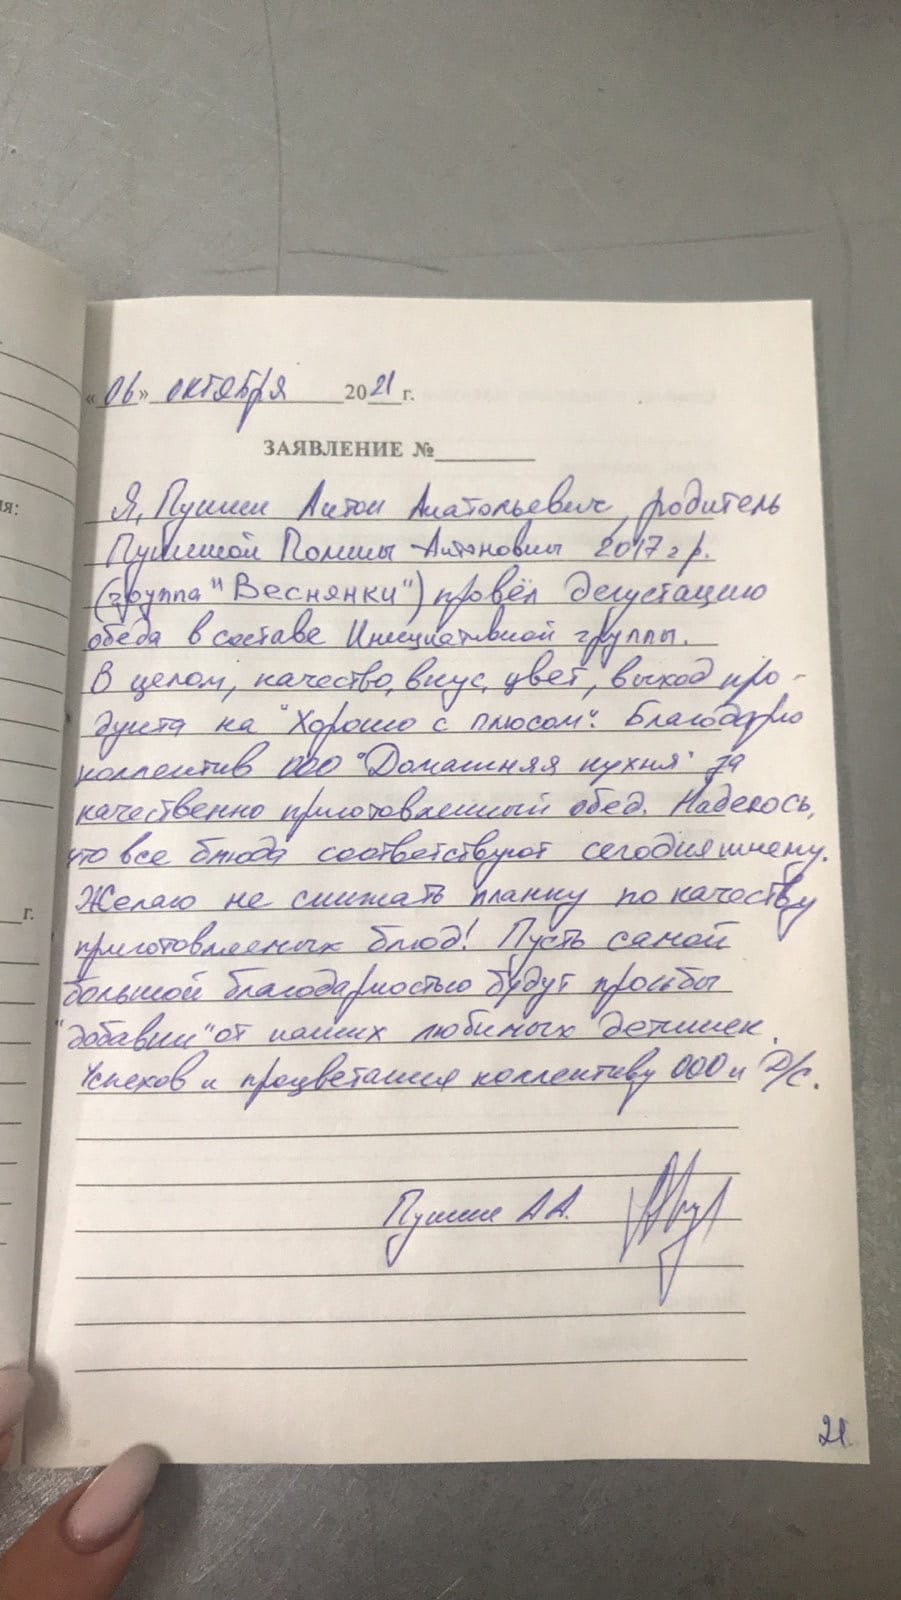 «06» октября 2021 г.
ЗАЯВЛЕНИЕ №
Я, Пушин Антон Анатольевич, родитель
Пушиной Полины Антоновны 2017 г.р.
(группа "Веснянки") провёл дегустацию
обеда в составе Инициативной группы.
В целом, качество, вкус, цвет, выход про-
дукта на "Хорошо с плюсом". Благодарю
коллектив ООО "Домашняя кухня" за
качественно приготовленный обед. Надеюсь,
что все блюда соответствуют сегодняшнему.
Желаю не снижать планку по качеству
приготовляемых блюд! Пусть самой
большой благодарностью будут просьбы
"добавки" от наших любимых детишек.
Успехов и процветания коллективу ООО и Д/С.
Пушин А.А.
21
ия:
г.